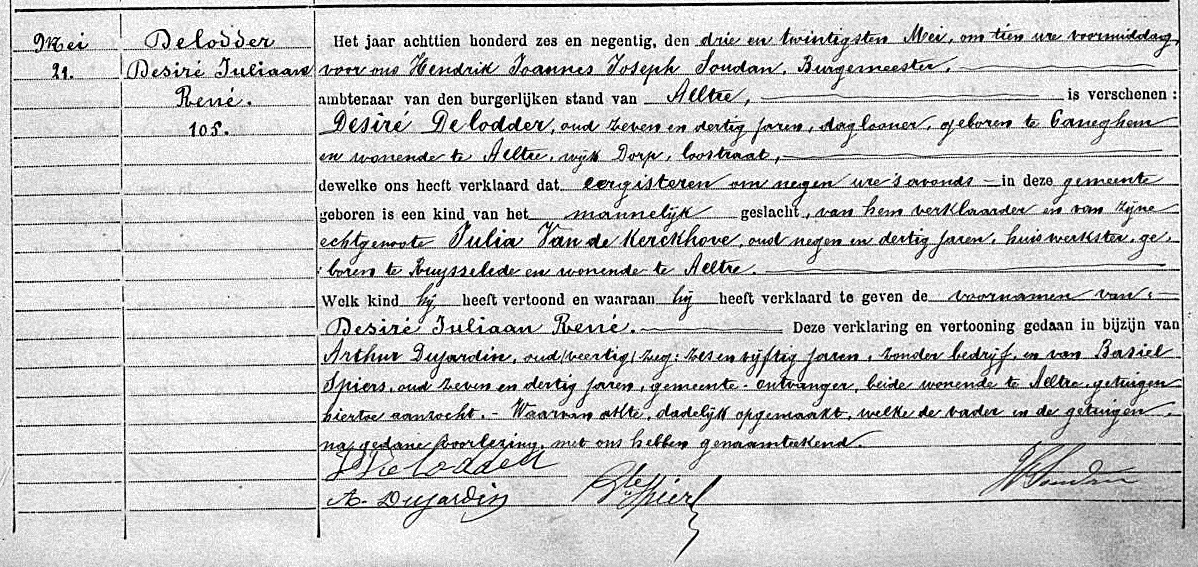 Mei
21.
Delodder
Desiré Juliaan
René.
105.
Het jaar achttien honderd zes en negentig, den drie en twintigsten Mei, om tien ure voormiddag,
voor ons Hendrik Joannes Joseph Soudan, Burgemeester,
ambtenaar van den burgerlijken stand van Aeltre, is verschenen:
Desiré Delodder, oud zeven en dertig jaren, daglooner, geboren te Caneghem
en wonende te Aeltre, wijk Dorp, loostraat,
dewelke ons heeft verklaard dat eergisteren om negen ure 's avonds - in deze gemeente
geboren is een kind van het mannelijk geslacht, van hem verklaarder en van zijne
echtgenoote Julia Van de Kerckhove, oud negen en dertig jaren, huiswerkster, ge-
boren te Ruysselede en wonende te Aeltre.
Welk kind hij heeft vertoond en waaraan hij heeft verklaard te geven de voornamen van:
Desiré Juliaan René. Deze verklaring en vertooning gedaan in bijzijn van
Arthur Dujardin, oud (veertig) zeg: zes en vijftig jaren, zonder bedrijf, en van Basiel
Spiers, oud zeven en dertig jaren, gemeente-ontvanger, beide wonende te Aeltre, getuigen
hiertoe aanzocht. - Waarvan akte, dadelijk opgemaakt, welke de vader en de getuigen
na gedane voorlezing, met ons hebben genaamteekend.
D Delodder
A. Dujardin
Ble Spiers
HSoudan